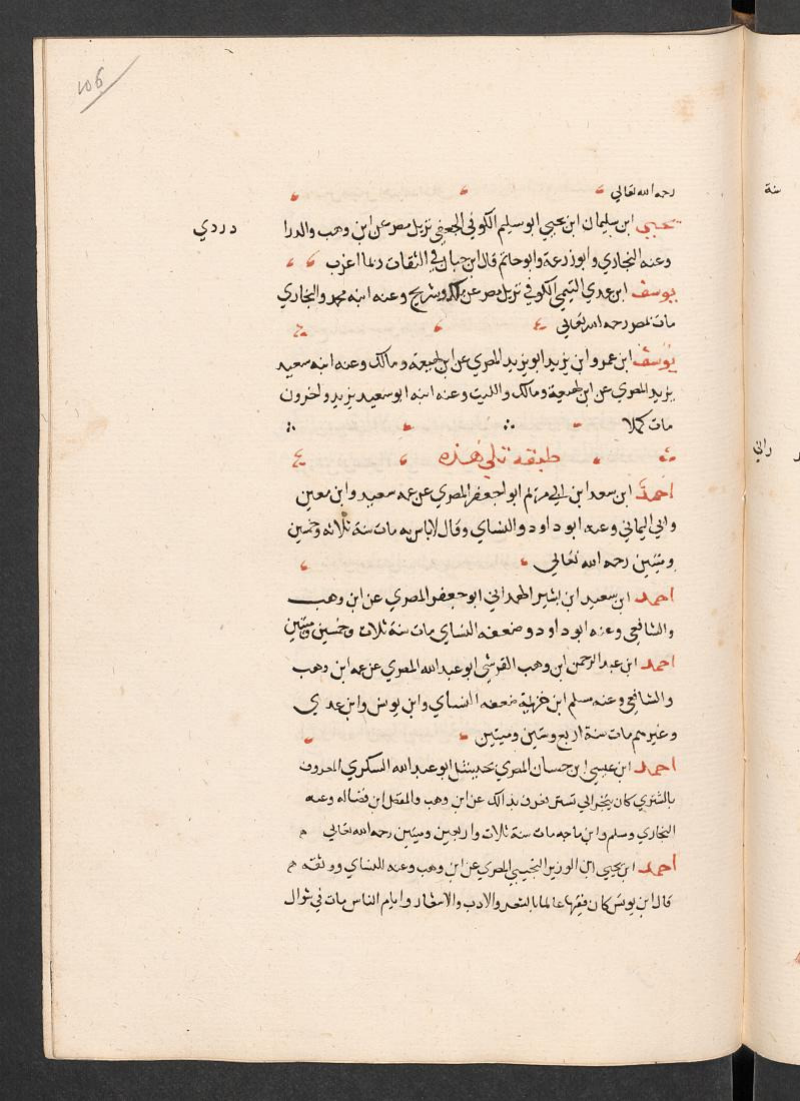 106
رحمه الله تعالي
يحيي ابن سليمان ابن يحيي ابو سليم الكوفي الجعفي نزيل مصر عن ابن وهب والدرا
دردي
وعنه البخاري وابو زرعة وابو حاتم قال ابن حبان في الثقات ربما اغرب
يوسف ابن عدي التيمي الكوفي نزيل مصر عن مالك وشريح وعنه ابنه محمد والبخاري
مات بمصر رحمه الله تعالي
يوسف ابن عمرو ابن يزيد ابو يزيد المصري عن ابن لهيعة ومالك وعنه ابنه سعيد
يزيد المصري عن ابن لهيعة ومالك والليث وعنه ابنه ابو سعيد يزيد واخرون
مات كهلا
طبقه تلي هذه
احمد ابن سعد ابن ابي مريم ابو جعفر المصري عن عمه سعيد وابن معين
وابي اليماني وعنه ابو داود والنساي وقال لاباس به مات سنة ثلاثه وخمسين
وميتين رحمه الله تعالي
احمد ابن سعيد ابن بشير الهمداني ابو جعفر المصري عن ابن وهب
والشافعي وعنه ابو داود وضعفه النساي مات سنة ثلاث وخمسين وميتين
احمد ابن عبد الرحمن ابن وهب القرشي ابو عبد الله المصري عن عمه ابن وهب
والشافعي وعنه مسلم ابن خزيمة ضعفه النساي وابن يونس وابن عدي
وغيرهم مات سنة اربع وستين وميتين
احمد ابن عيسي ابن حسان المصري ابو عبد الله السكري المعروف
بالتستري كان يتجر الي تستر فعرف بذالك عن ابن وهب والمفضل ابن فضاله وعنه
البخاري وسلم وابن ماجه مات سنة ثلاث واربعين وميتين رحمه الله تعالي
احمد ابن يحيي ابن الوزير التجيبي المصري عن ابن وهب وعنه النساي ووثقه
قال ابن يونس كان فقيها عالما بالشعر والادب والاخبار وايام الناس مات في شوال
سنة
راني